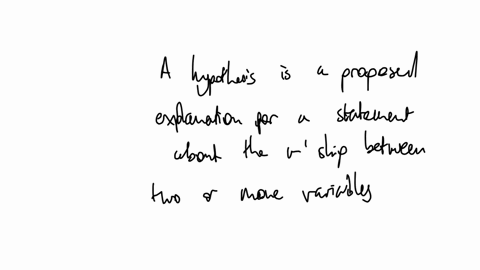 A hypothesis is a proposed
explanation for a statement
about the r'ship between
two or more variables